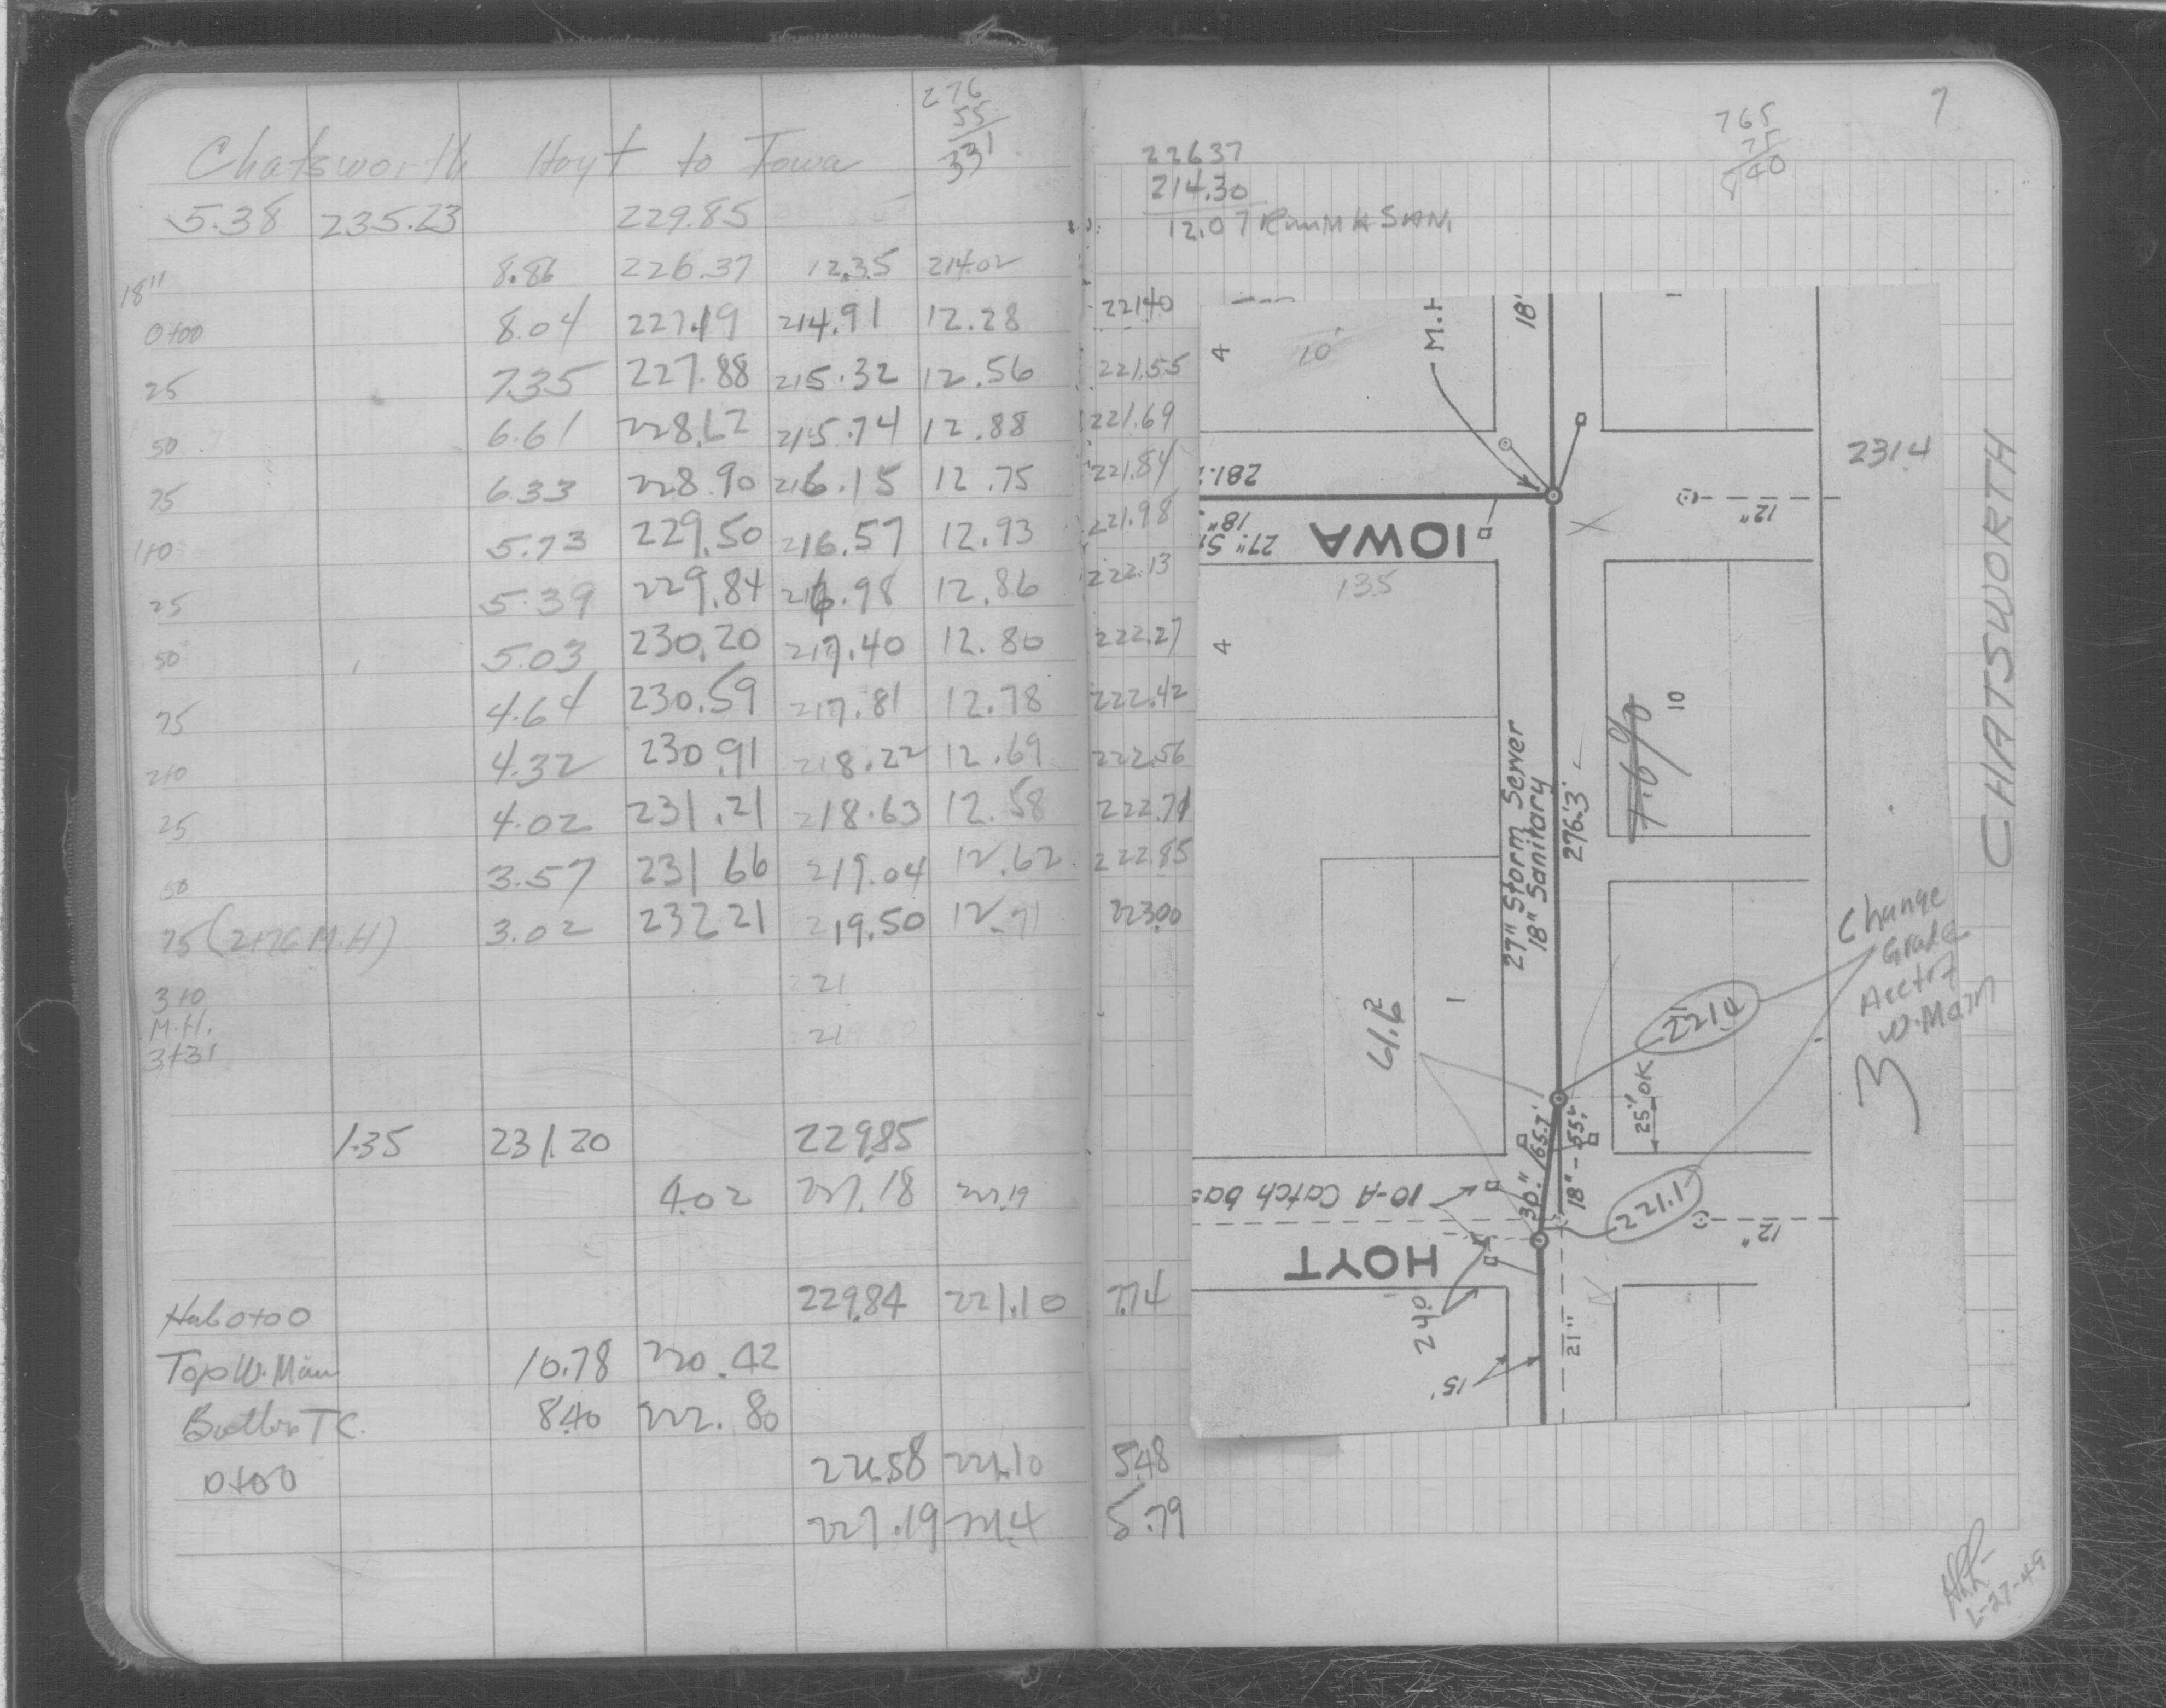 276
55
331
Chatsworth Hoyt to Iowa
5.38 235.23 229.85
18" 8.86 226.37 12.35 214.02
0+00 8.04 227.19 214.91 12.28 221.40
25 7.35 227.88 215.32 12.56 221.55
50 6.61 228.62 215.74 12.88 221.69
75 6.33 228.90 216.15 12.75 221.84
1+0 5.73 229.50 216.57 12.93 221.98
25 5.39 229.84 216.98 12.86 222.13
50 5.03 230.20 217.40 12.80 222.27
75 4.64 230.59 217.81 12.78 222.42
2+0 4.32 230.91 218.22 12.69 222.56
25 4.02 231.21 218.63 12.58 222.71
50 3.57 231.66 219.04 12.62 222.85
75 (2+76 M.H) 3.02 232.21 219.50 12.71 223.00
3+0 21
M.H.
3+31 21
1.35 231.20 229.85
4.02 227.18 227.19
Hub 0+00 229.84 221.10 7.74
Top W. Main 10.78 220.42
8.40 222.80
0+00 226.58 221.10 5.48
227.19 221.4 5.79
7
22637
214.30
12.07 Run MH SAN.
765
75
840
4
10'
M.H
18'
281.
18"
27" St
IOWA
12"
2314
CHATSWORTH
135
4
27" Storm Sewer
18" Sanitary
276.3'
7.6 90
10
61.6
1
221.4
Change
Grade
Acct of
W. Main
3
25' OK
30" 65.7'
18" - 55'
10-A Catch bas
221.1
HOYT
12"
240
15'
21"
6-27-49